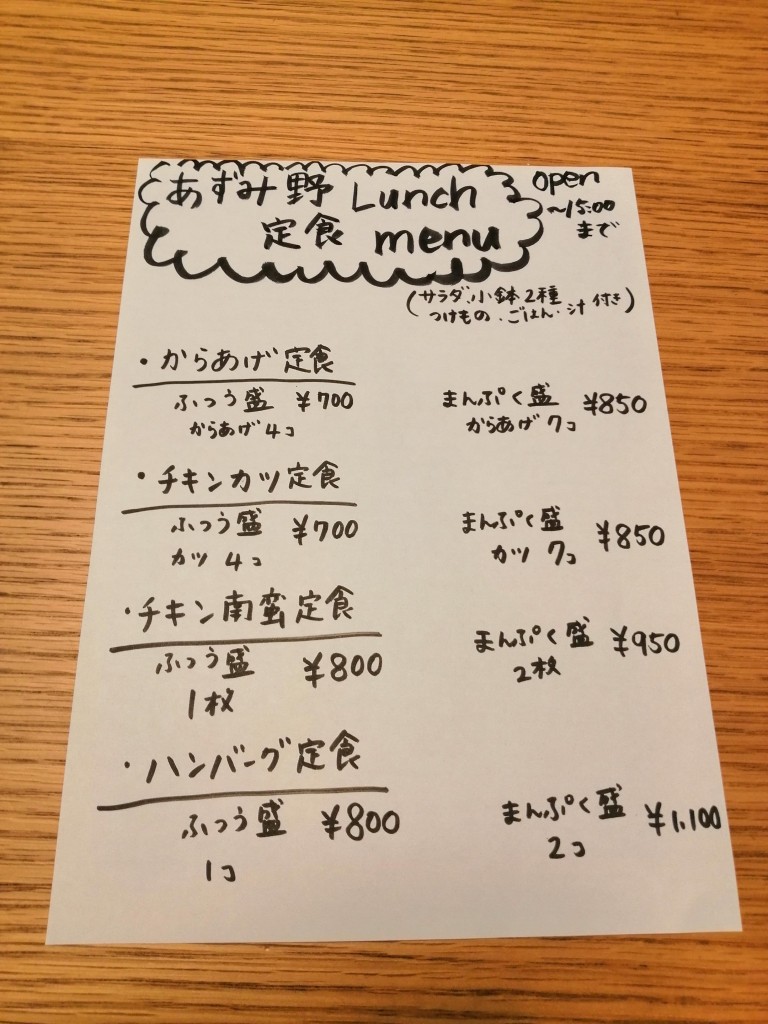 あずみ野 Lunch
定食 menu
open
～15:00
まで
(サラダ、小鉢2種
つけもの、ごはん・汁 付き)
・からあげ定食
ふつう盛 ¥700
からあげ4コ
まんぷく盛 ¥850
からあげ 7コ
・チキンカツ定食
ふつう盛 ¥700
カツ 4コ
まんぷく盛 ¥850
カツ 7コ
・チキン南蛮定食
ふつう盛 ¥800
1枚
まんぷく盛 ¥950
2枚
・ハンバーグ定食
ふつう盛 ¥800
1コ
まんぷく盛 ¥1,100
2コ